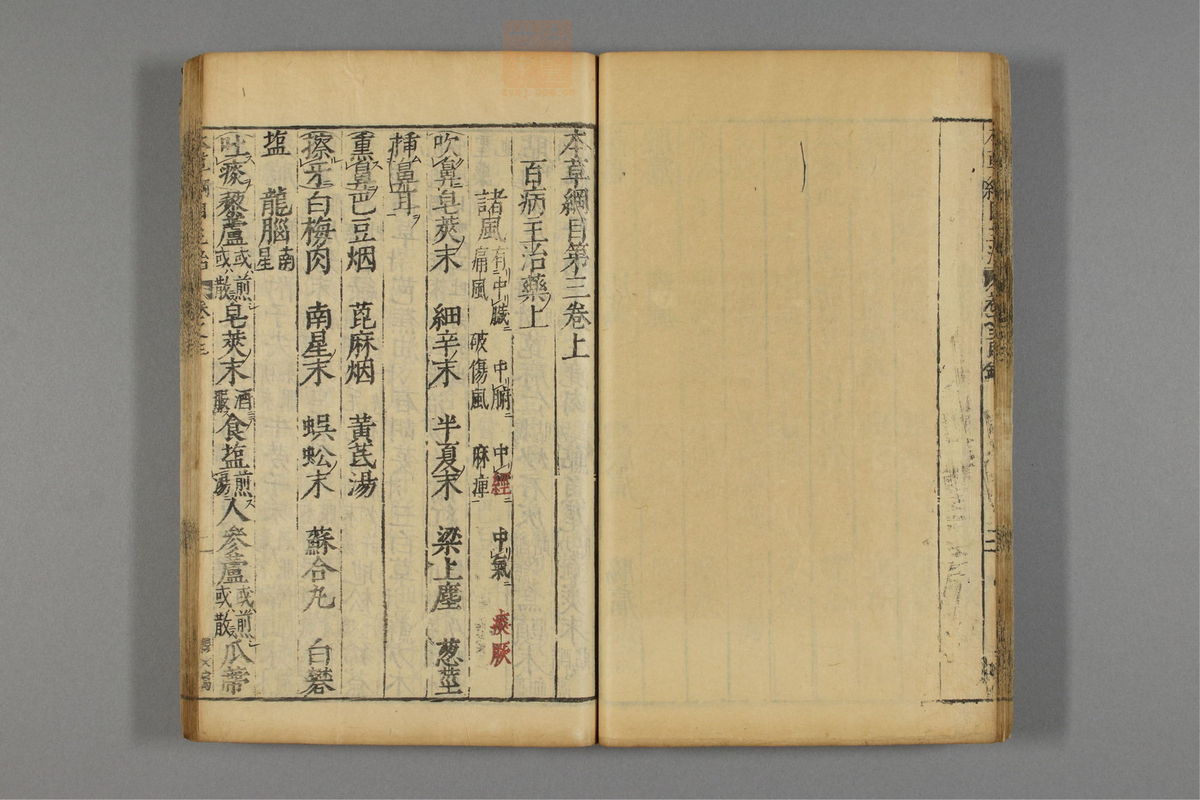 本草綱目第三卷上
百病主治藥上
諸風 有中臟 中腑 中經 中氣 痰厥
痛風 破傷風 麻痺
吹鼻 皂莢末 細辛末 半夏末 梁上塵 葱莖
揷鼻耳
熏鼻 巴豆烟 蓖麻烟 黃芪湯
擦牙 白梅肉 南星末 蜈蚣末 蘇合丸 白礬
塩 龍腦 南星
吐痰 藜蘆 或煎或散 皂莢末 酒服 食塩 煎湯 人參蘆 或煎或散 瓜蒂